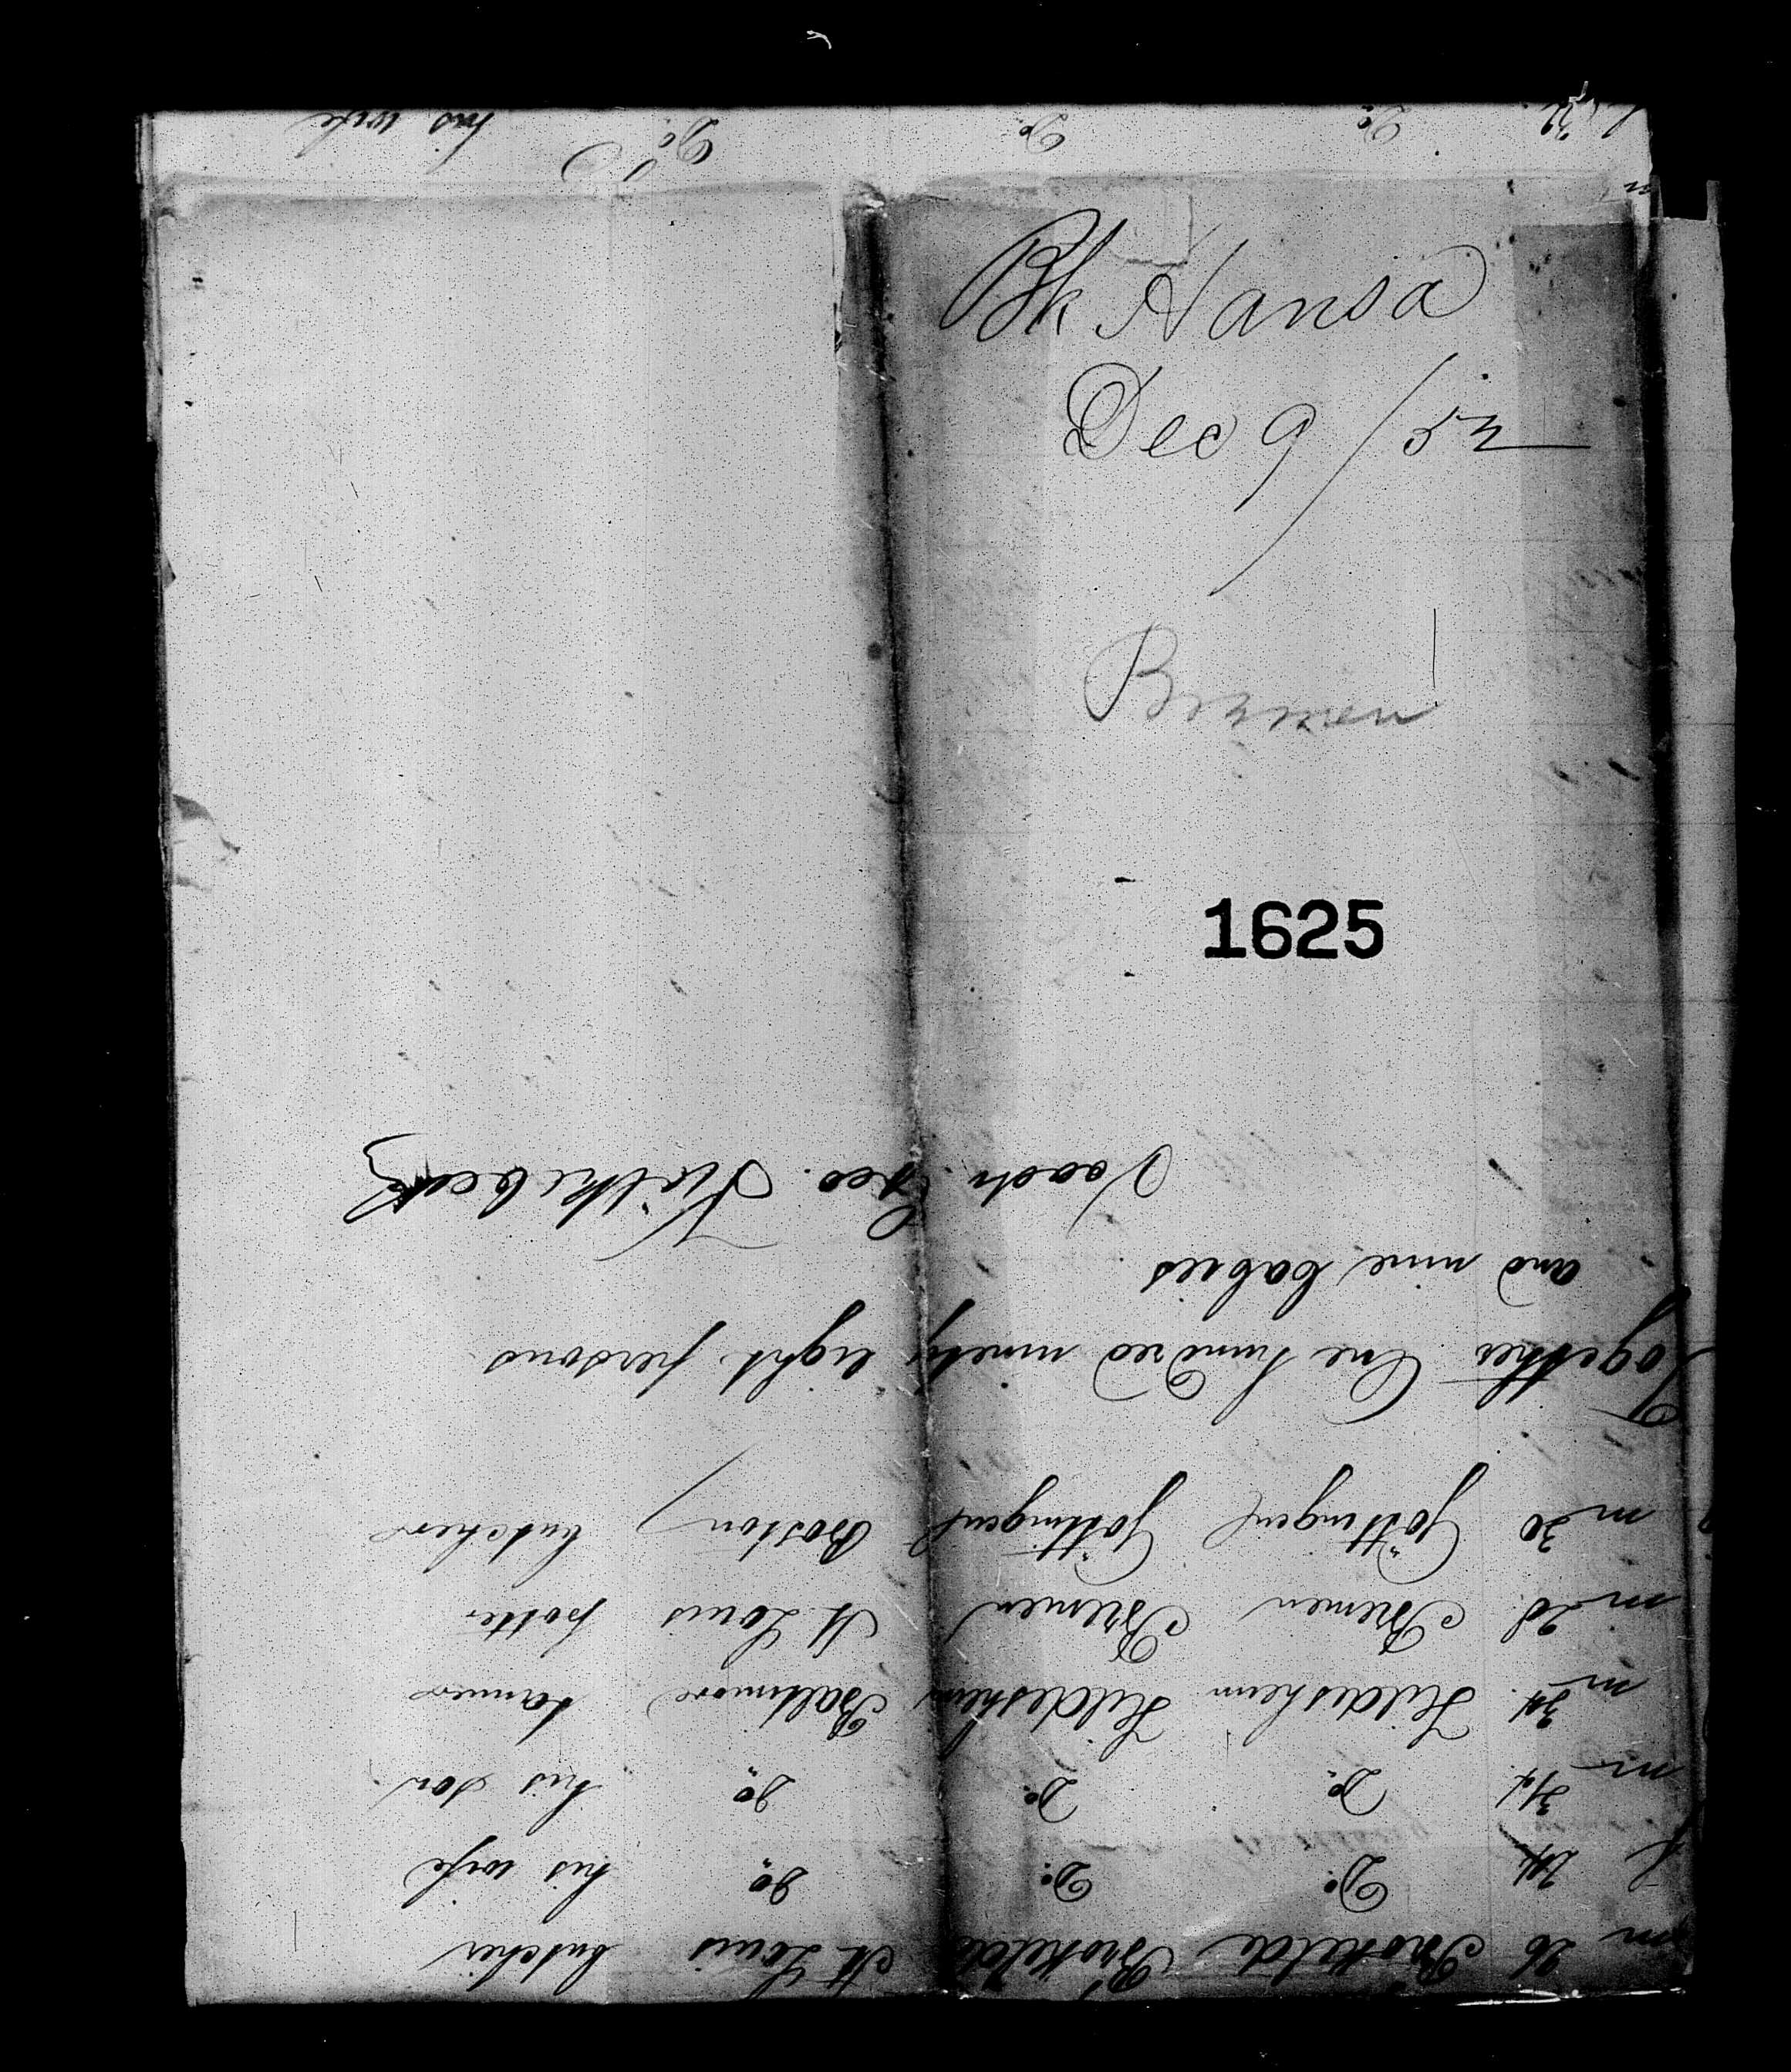 Bk Hansa
Dec 9 / 52
Bremen
1625
his wife Do Do Do 32
m 26 St Louis butcher
f 24 Do Do Do his wife
m 3/4 Do Do Do his son
m 34 Hildesheim Hildesheim Baltimore tanner
m 28 Bremen Bremen St Louis potter
m 30 Göttingen Göttingen Boston butcher
Together One hundred ninety eight persons
and nine babies
Geo.